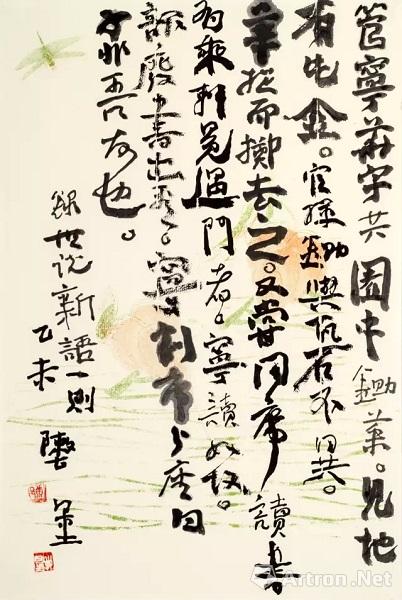 管寧華歆共園中鋤菜。見地
有片金。管揮鋤與瓦石不異。
華捉而擲去之。又嘗同席讀書
有乘軒冕過門者。寧讀如故。
歆廢書出看。寧割席分座曰
子非吾友也。
錄世說新語一則
乙未
Artron.Net